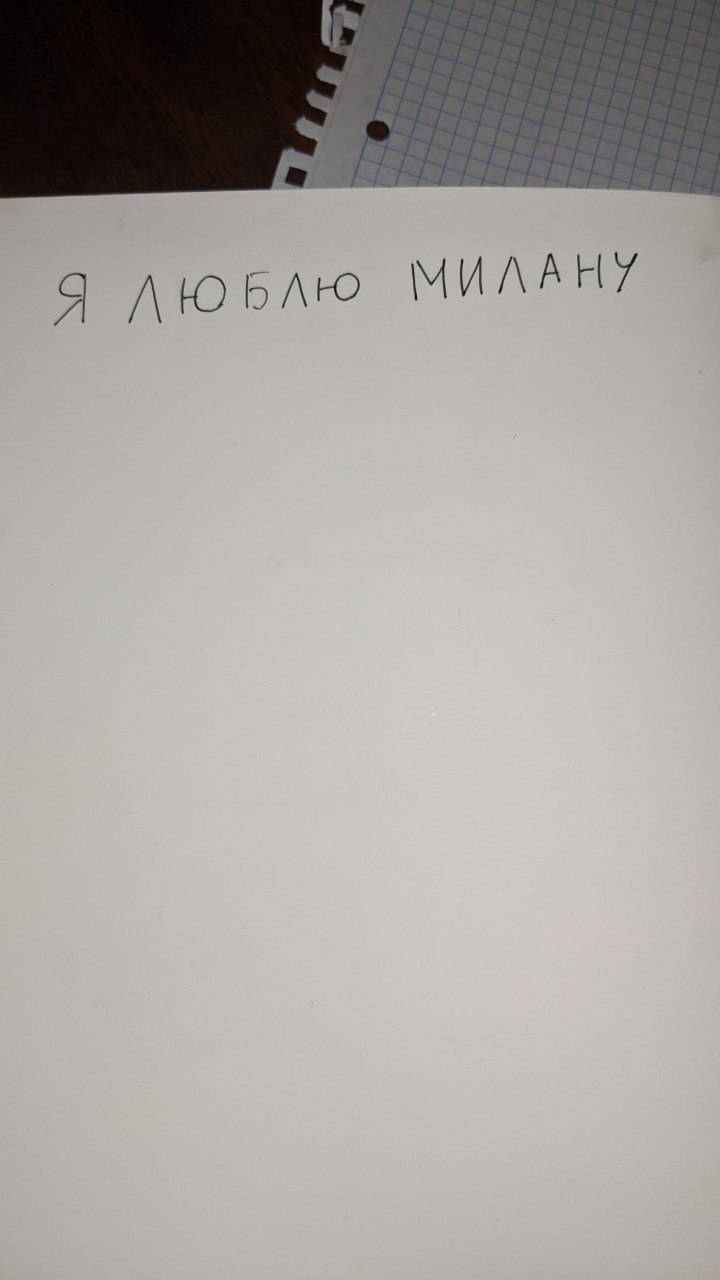 Я ЛЮБЛЮ МИЛАНУ